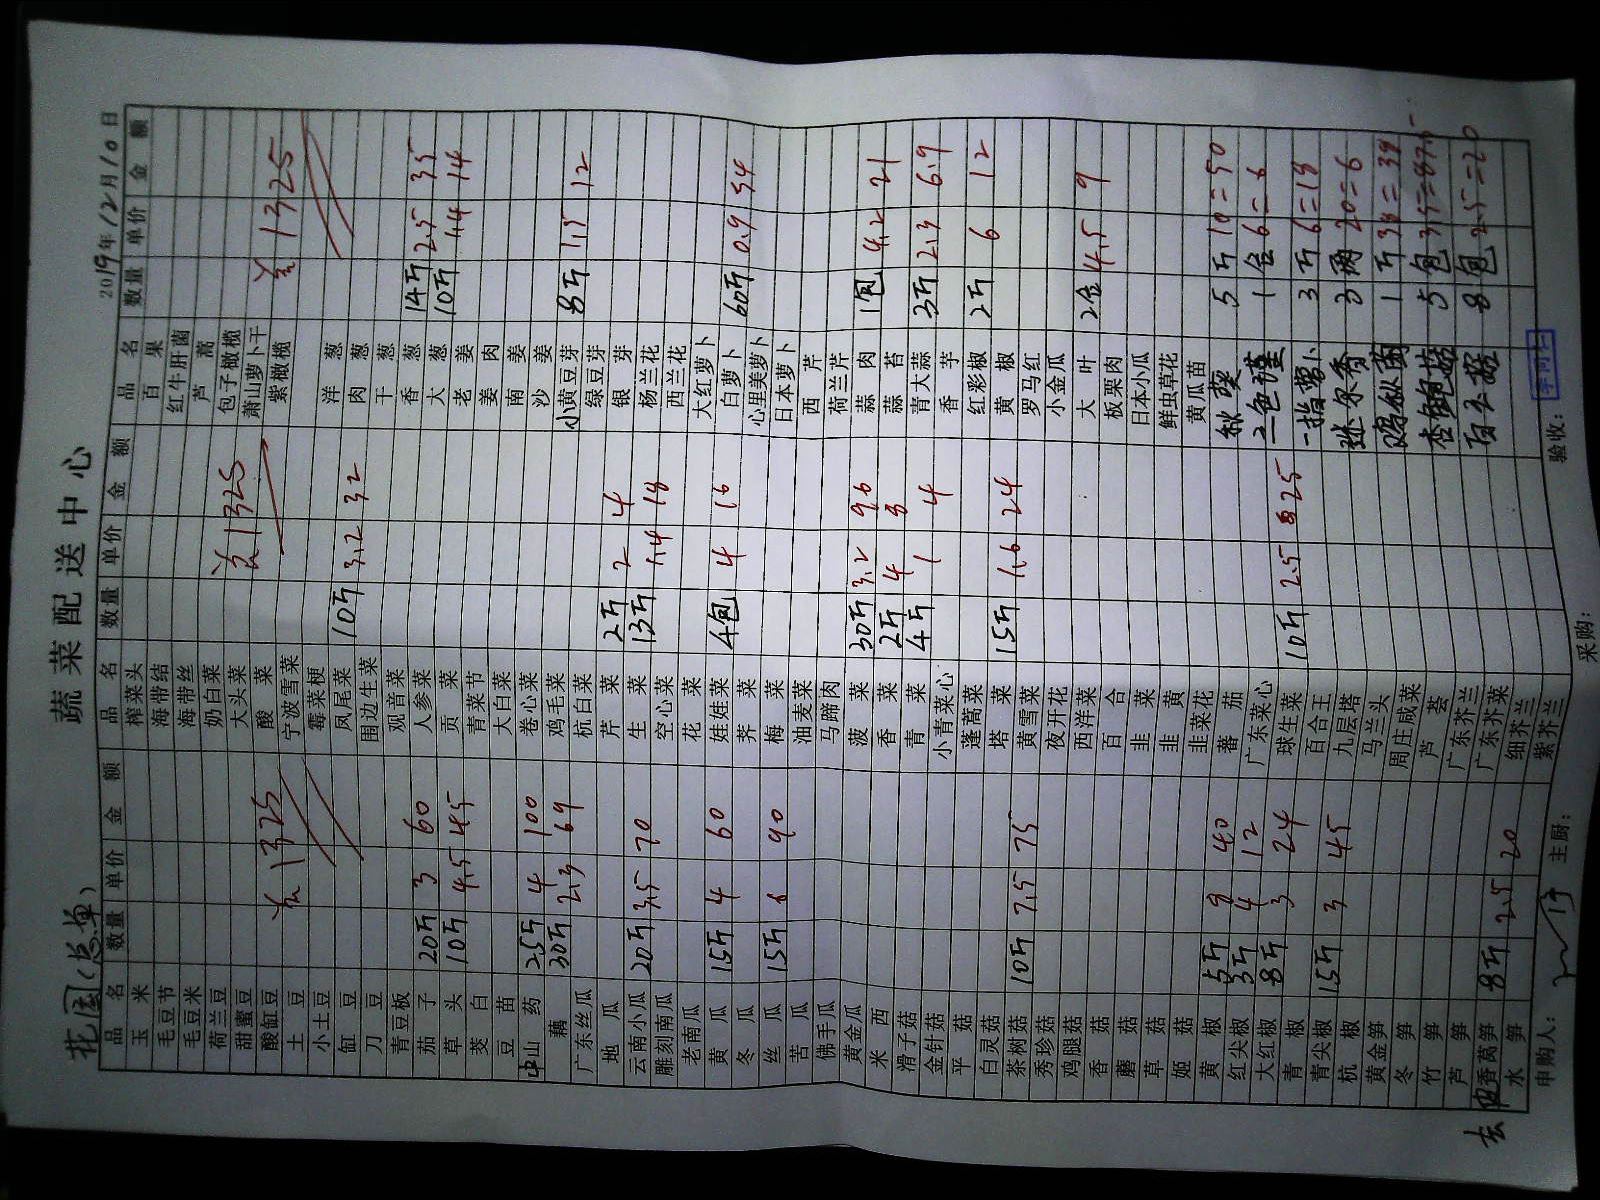 蔬菜配送中心
花园(总单) 2019年12月10日
品名 数量 单价 金额 品名 数量 单价 金额 品名 数量 单价 金额
玉米 榨菜头 百果
毛豆节 海带结 红牛肝菌
毛豆米 海带丝 芦蒿
荷兰豆 奶白菜 包子橄榄
甜蜜豆 大头菜 萧山萝卜干
酸缸豆 1325 酸菜 1325 紫橄榄 1325
土豆 宁波雪菜
小土豆 霉菜梗 洋葱
缸豆 凤尾菜 10斤 3.2 32 肉葱
刀豆 围边生菜 干葱
青豆板 观音菜 香葱 14斤 2.5 35
茄子 20斤 3 60 人参菜 大葱 10斤 1.4 14
草头 10斤 4.5 45 贡菜 老姜
茭白 青菜节 姜肉
豆苗 大白菜 南姜
山药 25斤 4 100 卷心菜 沙姜
藕 30斤 2.3 69 鸡毛菜 小黄豆芽 8斤 1.5 12
广东丝瓜 杭白菜 绿豆芽
地瓜 芹菜 2斤 2 4 银芽
云南小瓜 20斤 3.5 70 生菜 13斤 1.4 18 杨兰花
雕刻南瓜 空心菜 西兰花
老南瓜 花菜 大红萝卜
黄瓜 15斤 4 60 娃娃菜 4包 4 16 白萝卜 60斤 0.9 54
冬瓜 荠菜 心里美萝卜
丝瓜 15斤 6 90 梅菜 日本萝卜
苦瓜 油麦菜 西芹
佛手瓜 马蹄肉 荷兰芹
黄金瓜 菠菜 30斤 3.2 96 蒜肉 1包 4.2 21
米西 香菜 2斤 4 8 蒜苔
滑子菇 青菜 4斤 1 4 青大蒜 3斤 2.3 6.9
金针菇 小青菜心 香芋
平菇 蓬蒿菜 红彩椒 2斤 6 12
白灵菇 塔菜 15斤 1.6 24 黄椒
茶树菇 10斤 7.5 75 黄雪菜 罗马红
秀珍菇 夜开花 小金瓜
鸡腿菇 西洋菜 大叶 2盒 4.5 9
香菇 百合 板栗肉
蘑菇 韭菜 日本小瓜
草菇 韭黄 鲜虫草花
姬菇 韭菜花 黄瓜苗
黄椒 5斤 8 40 番茄 秋葵 5斤 10=50
红尖椒 3斤 4 12 广东菜心 三色堇 1盒 6=6
大红椒 8斤 3 24 球生菜 10斤 2.5 25 一指萝卜 3斤 6=18
青椒 百合王 3两 20=6
青尖椒 15斤 3 45 九层塔 鸡枞菌 1斤 38=38
杭椒 马兰头 杏鲍菇 5包
黄金笋 周庄咸菜 白玉菇 8包 2.5=20
冬笋 芦荟
竹笋 广东芥兰
芦笋 广东芥菜
香莴笋 8斤 2.5 20 细芥兰
水笋 紫芥兰
申购人: 主厨: 采购: 验收: